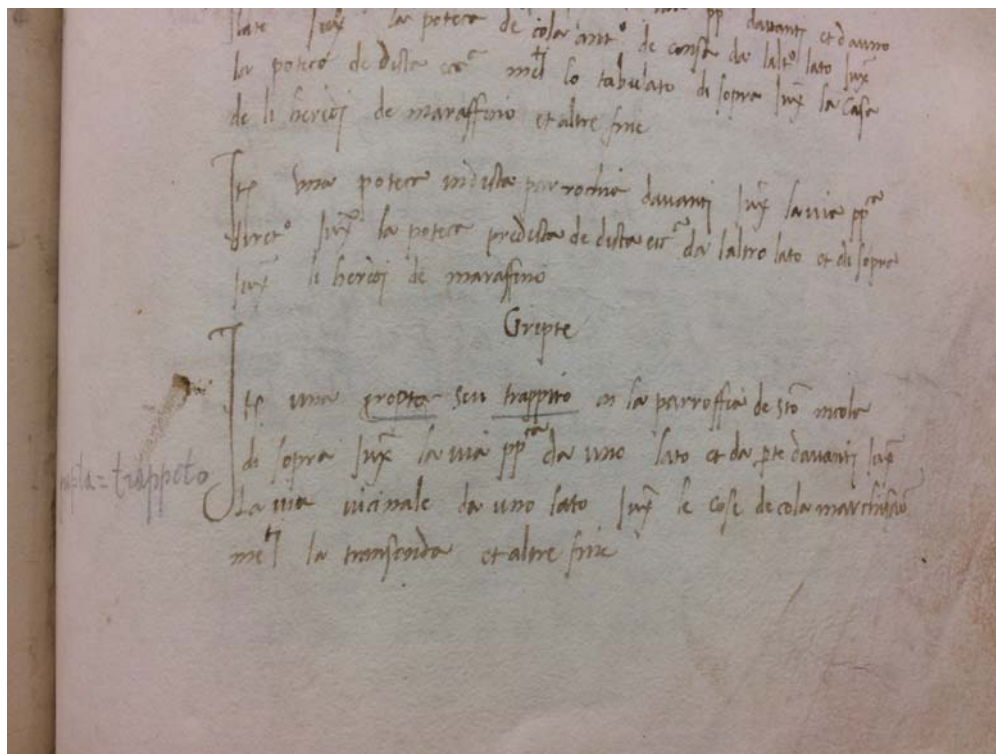 lato iux la poteca de cola ant° de consa da lalt° lato iux
la poteca de dicta ecc^a me^t lo tabulato di sopra iux la casa
de li heredj de maraffino et altre fine
Ite una poteca in dicta parrochia davantj iux la via pp^ca
diret° iux la poteca predicta de dicta ecc^a da laltro lato et di sopra
iux li heredj de maraffino
Gripte
Ite una gropta seu trappito in la parroffia de sto nicola
di sopra iux la via pp^ca da uno lato et da pte davanti iux
La via vicinale da uno lato iux le cose de cola marchisano
me^t la transenda et altre fine
= trappeto